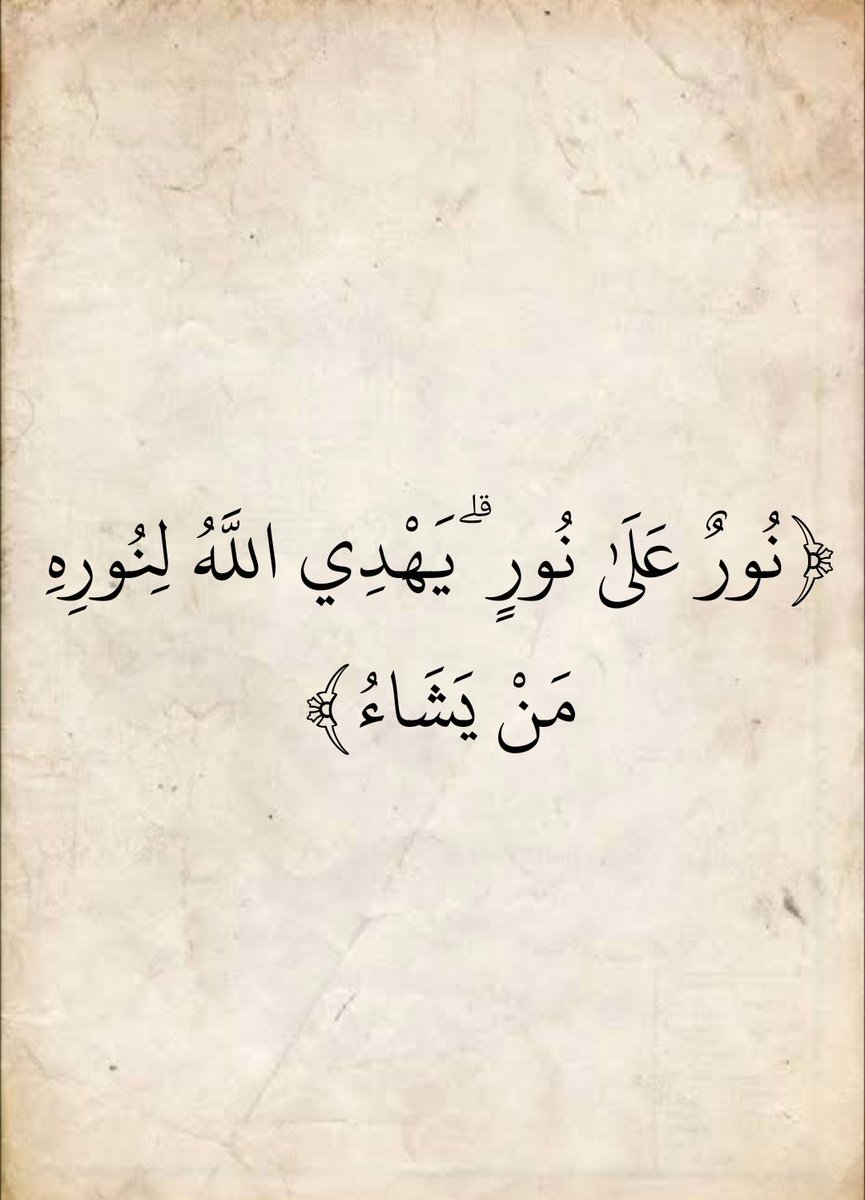 ﴿نُورٌ عَلَىٰ نُورٍ ۗ يَهْدِي اللَّهُ لِنُورِهِ
مَنْ يَشَاءُ﴾